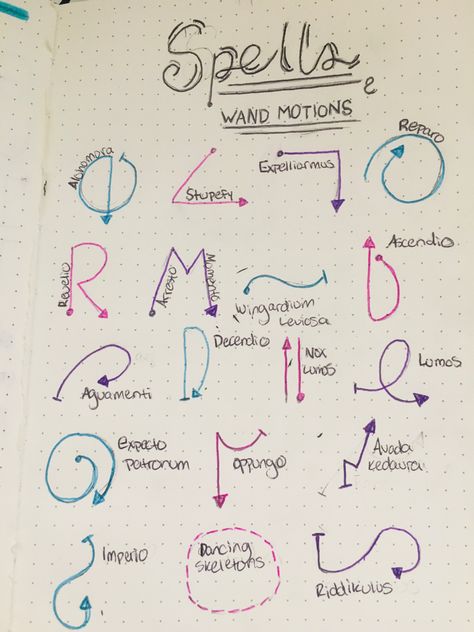 Spells &
WAND MOTIONS
Alohomora
Stupefy
Expelliarmus
Reparo
Revelio
Arresto
Momento
Wingardium
Leviosa
Ascendio
Aguamenti
Decendio
Nox
Lumos
Expecto
patronum
Oppungo
Avada
Kedaura
Imperio
Dancing
Skeletons
Riddikulus